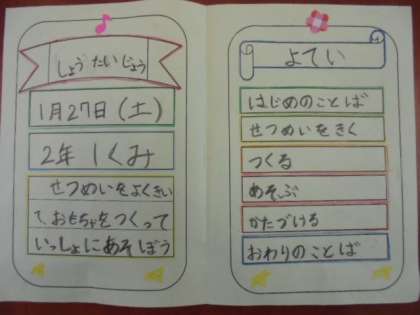 しょうたいじょう
1月27日(土)
2年 1くみ
せつめいをよくきい
て おもちゃをつくって
いっしょにあそぼう
よてい
はじめのことば
せつめいをきく
つくる
あそぶ
かたづける
おわりのことば